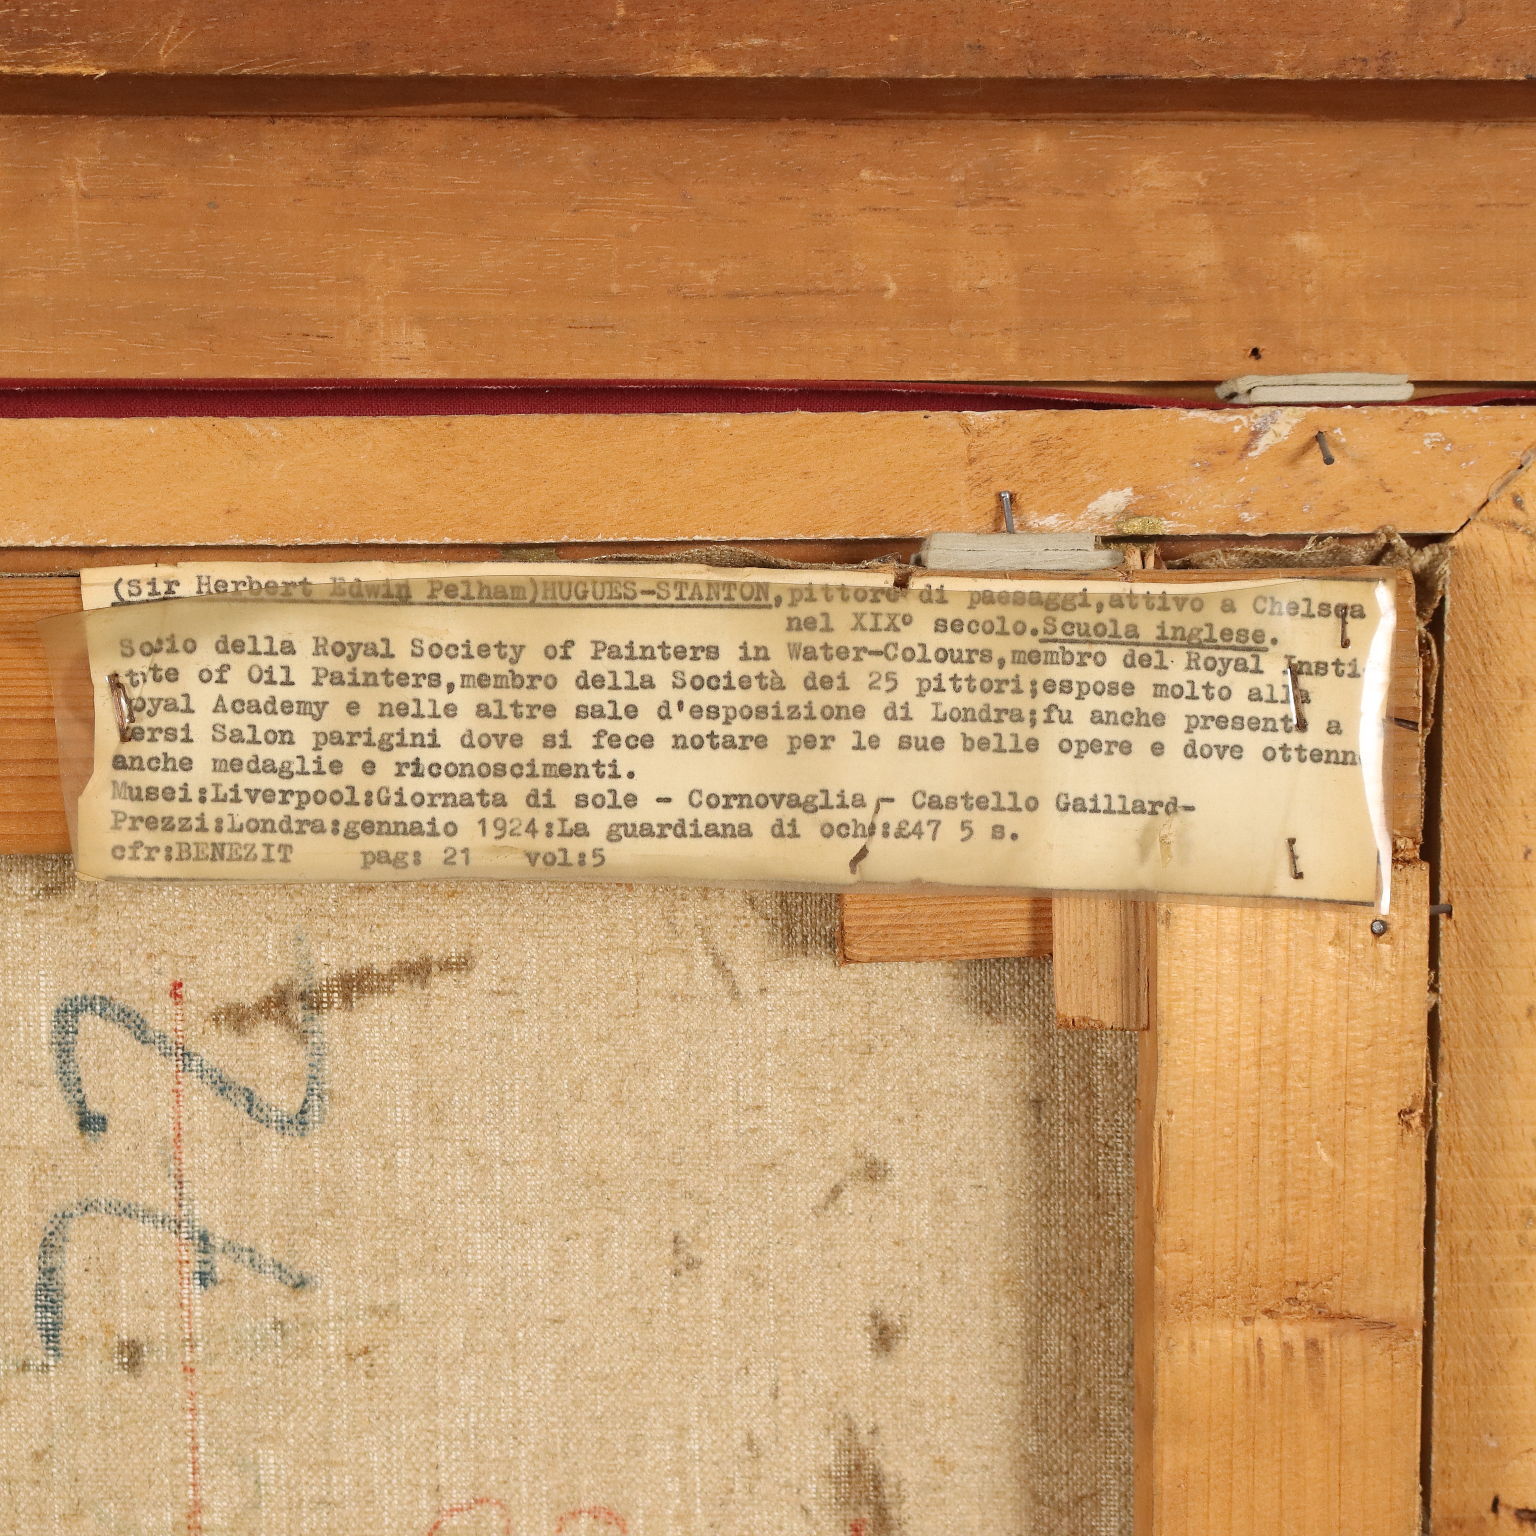 (Sir Herbert Edwin Pelham)HUGUES-STANTON,pittore di paesaggi,attivo a Chelsea
nel XIXº secolo.Scuola inglese.
Socio della Royal Society of Painters in Water-Colours,membro del Royal Insti
tute of Oil Painters,membro della Società dei 25 pittori;espose molto alla
Royal Academy e nelle altre sale d'esposizione di Londra;fu anche presente a
versi Salon parigini dove si fece notare per le sue belle opere e dove ottenn
anche medaglie e riconoscimenti.
Musei:Liverpool:Giornata di sole - Cornovaglia - Castello Gaillard-
Prezzi:Londra:gennaio 1924:La guardiana di oche:£47 5 s.
cfr:BENEZIT pag: 21 vol:5